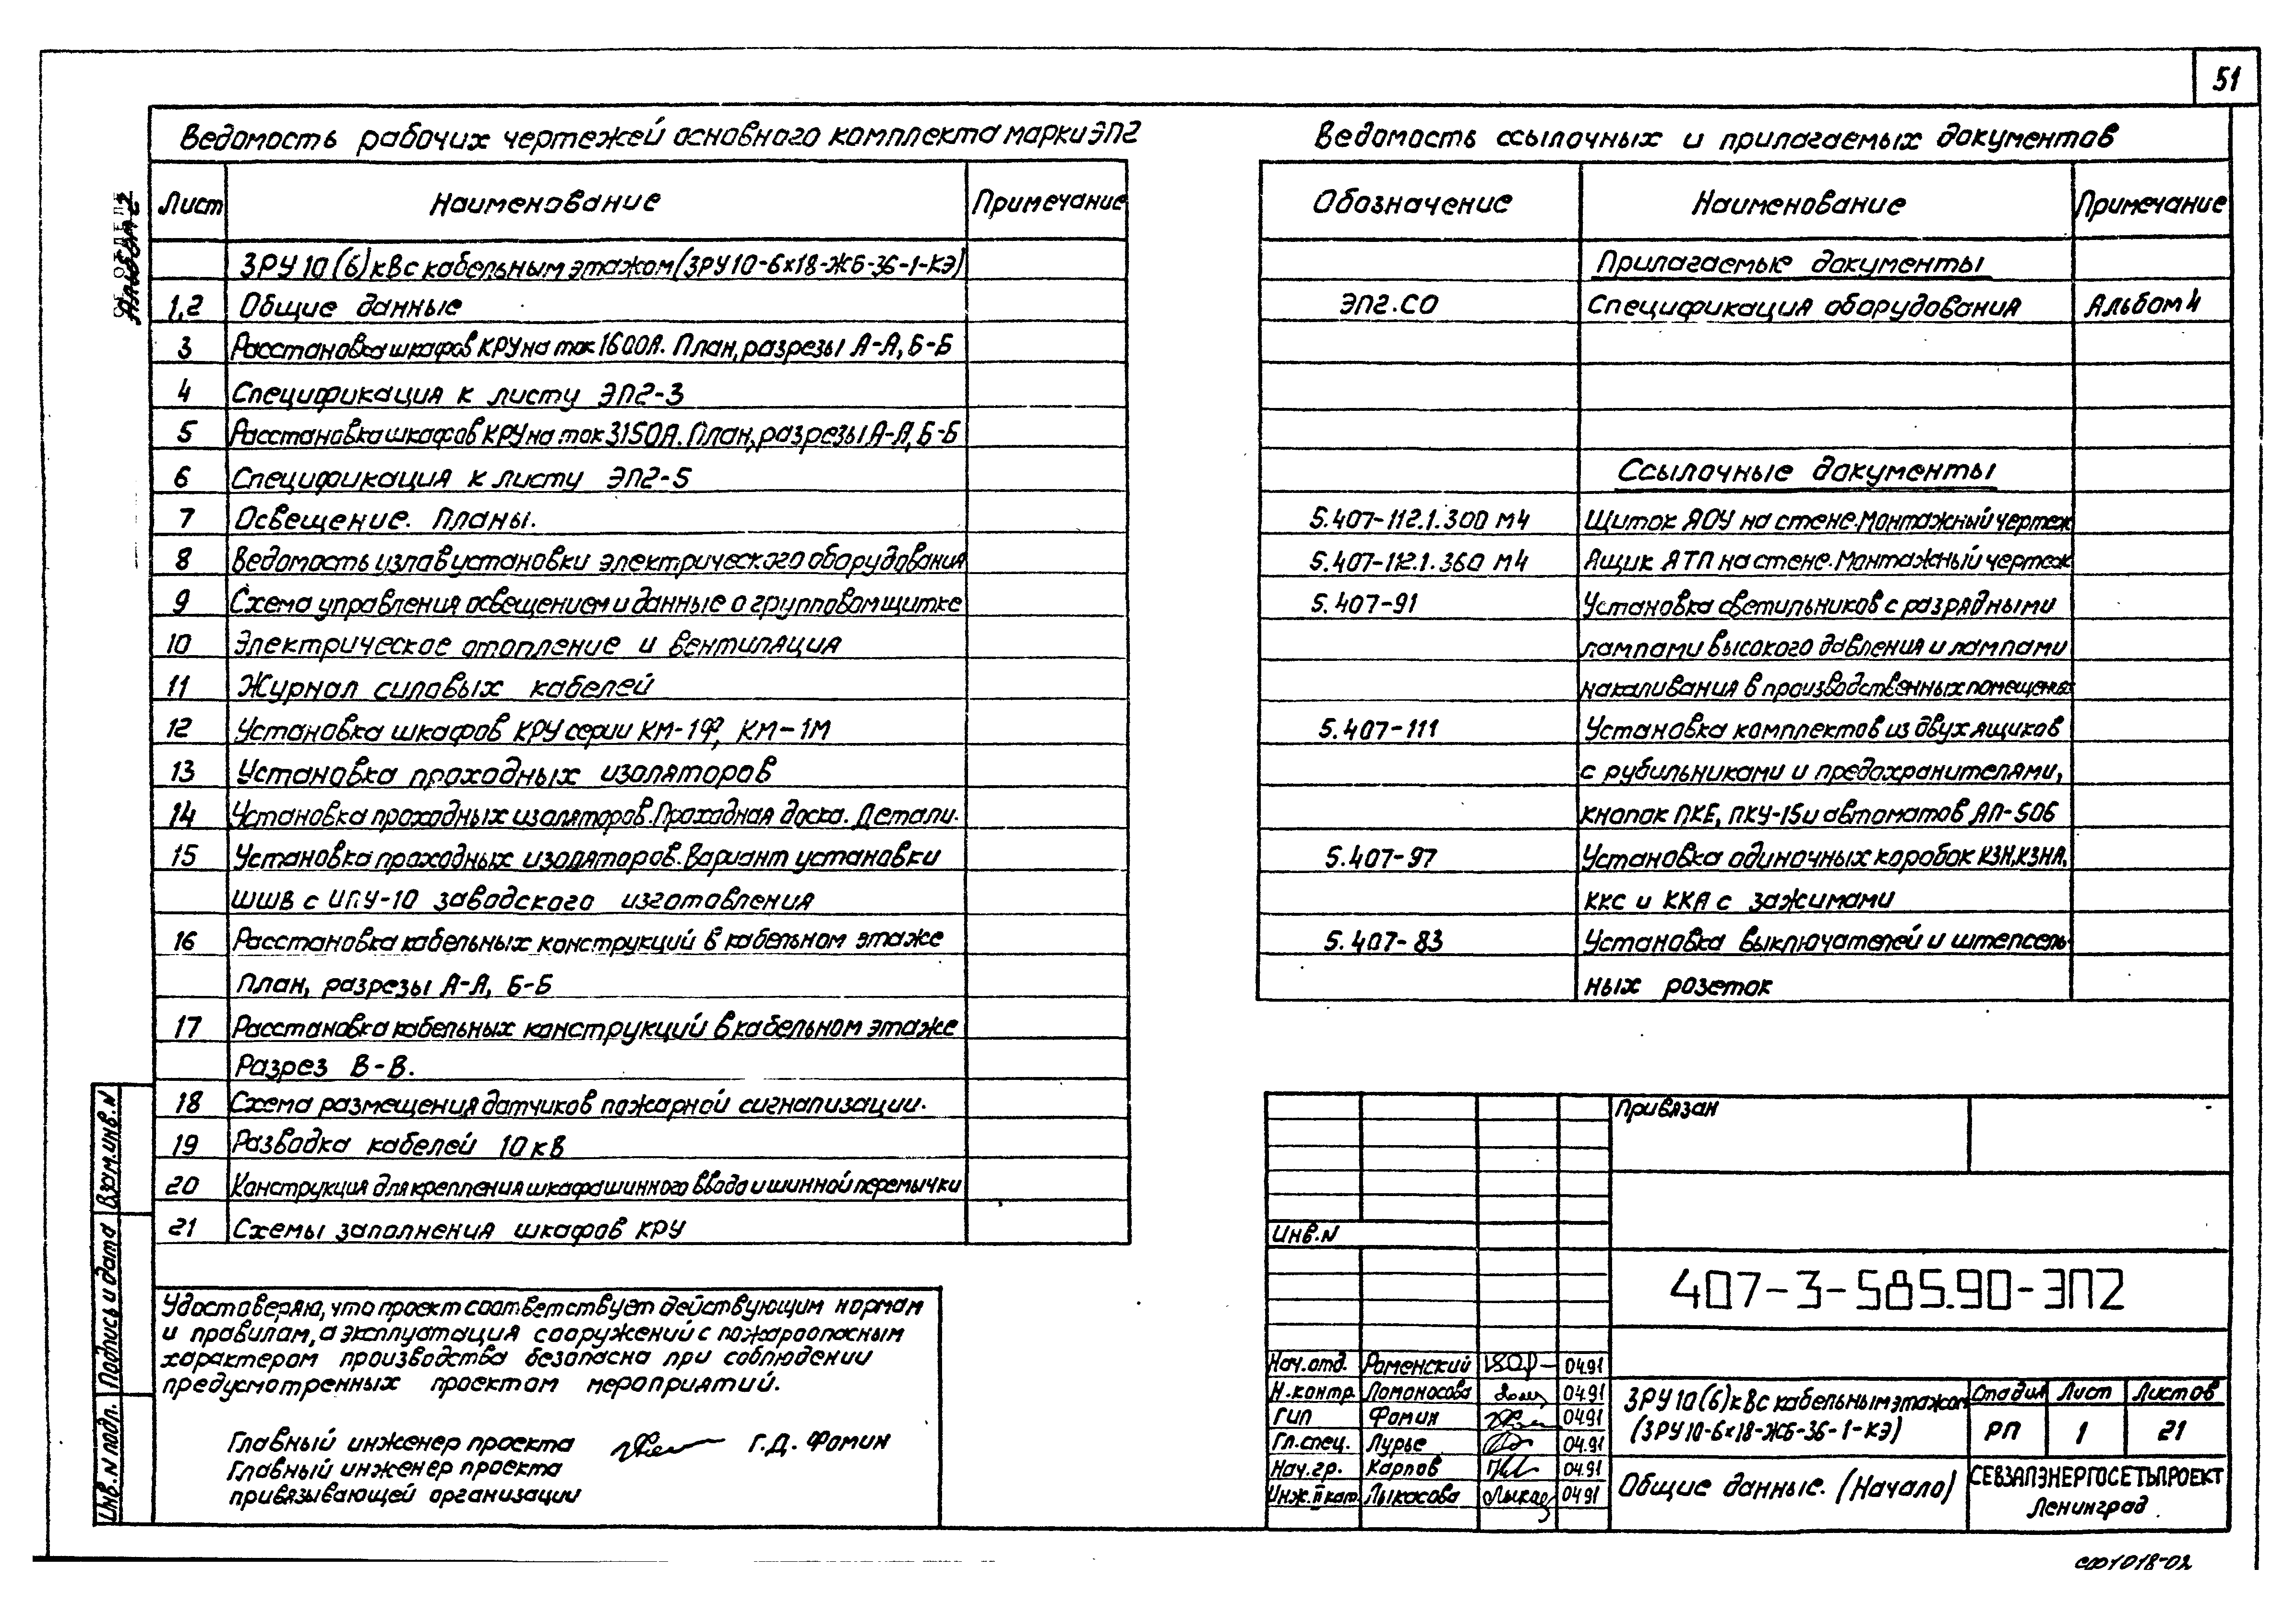 51
Альбом 2
Ведомость рабочих чертежей основного комплекта марки ЭП2
Лист Наименование Примечание
ЗРУ 10 (6) кВ с кабельным этажом (ЗРУ10-6х18-ЖБ-36-1-КЭ)
1,2 Общие данные
3 Расстановка шкафов КРУ на ток 1600А. План, разрезы А-А, Б-Б
4 Спецификация к листу ЭП2-3
5 Расстановка шкафов КРУ на ток 3150А. План, разрезы А-А, Б-Б
6 Спецификация к листу ЭП2-5
7 Освещение. Планы.
8 Ведомость узлов установки электрического оборудования
9 Схема управления освещением и данные о групповом щитке
10 Электрическое отопление и вентиляция
11 Журнал силовых кабелей
12 Установка шкафов КРУ серии КМ-1Ф, КМ-1М
13 Установка проходных изоляторов
14 Установка проходных изоляторов. Проходная доска. Детали.
15 Установка проходных изоляторов. Вариант установки
ШШВ с ИПУ-10 заводского изготовления
16 Расстановка кабельных конструкций в кабельном этаже
План, разрезы А-А, Б-Б
17 Расстановка кабельных конструкций в кабельном этаже
Разрез В-В.
18 Схема размещения датчиков пожарной сигнализации.
19 Разводка кабелей 10 кВ
20 Конструкция для крепления шкафа шинного ввода и шинной перемычки
21 Схемы заполнения шкафов КРУ
Удостоверяю, что проект соответствует действующим нормам
и правилам, а эксплуатация сооружений с пожароопасным
характером производства безопасна при соблюдении
предусмотренных проектом мероприятий.
Главный инженер проекта Г.Д. Фомин
Главный инженер проекта
привязывающей организации
Взам.инв.N
Подпись и дата
Инв.N подл.
Ведомость ссылочных и прилагаемых документов
Обозначение Наименование Примечание
Прилагаемые документы
ЭП2.СО Спецификация оборудования Альбом 4
Ссылочные документы
5.407-112.1.300 МЧ Щиток ЯОУ на стене. Монтажный чертеж
5.407-112.1.360 МЧ Ящик ЯТП на стене. Монтажный чертеж
5.407-91 Установка светильников с разрядными
лампами высокого давления и лампами
накаливания в производственных помещениях
5.407-111 Установка комплектов из двух ящиков
с рубильниками и предохранителями,
кнопок ПКЕ, ПКУ-15 и автоматов АП-50Б
5.407-97 Установка одиночных коробок КЗН, КЗНА,
ККС и ККА с зажимами
5.407-83 Установка выключателей и штепсель-
ных розеток
Привязан
Инв.N
407-3-585.90-ЭП2
Нач.отд. Роменский 04.91
Н.контр. Ломоносова 04.91
ГИП Фомин 04.91
Гл.спец. Лурье 04.91
Нач.гр. Карпов 04.91
Инж.II кат. Лыкосова 04.91
ЗРУ 10 (6) кВ с кабельным этажом
(ЗРУ10-6х18-ЖБ-36-1-КЭ)
Стадия Лист Листов
РП 1 21
Общие данные. (Начало)
СЕВЗАПЭНЕРГОСЕТЬПРОЕКТ
Ленинград